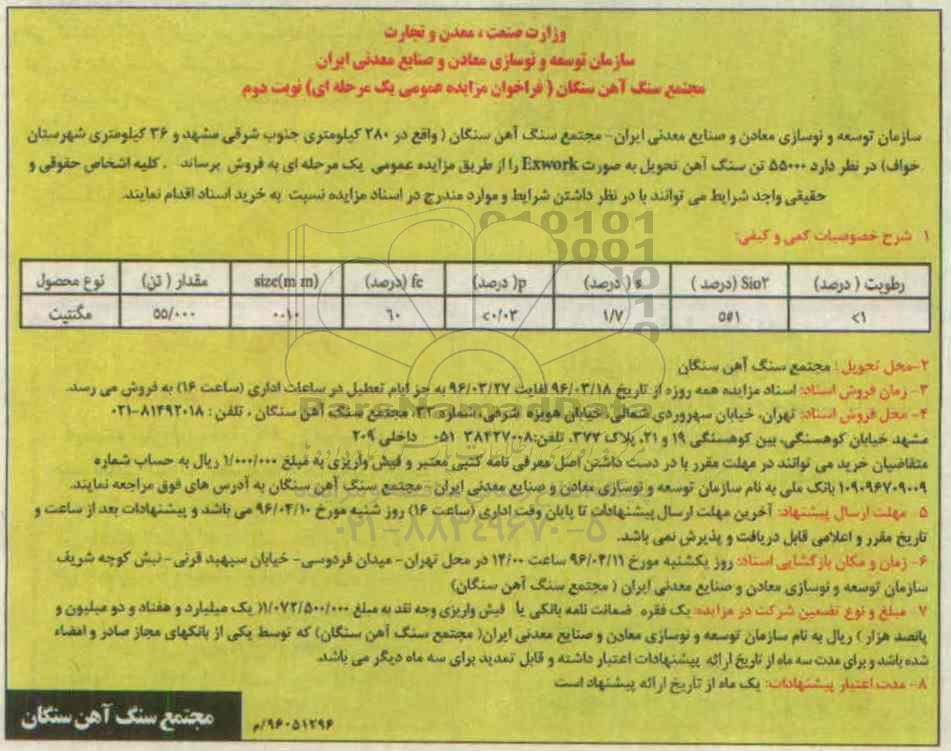 وزارت صنعت ، معدن و تجارت
سازمان توسعه و نوسازی معادن و صنایع معدنی ایران
مجتمع سنگ آهن سنگان ( فراخوان مزایده عمومی یک مرحله ای) نوبت دوم
سازمان توسعه و نوسازی معادن و صنایع معدنی ایران- مجتمع سنگ آهن سنگان ( واقع در ۲۸۰ کیلومتری جنوب شرقی مشهد و ۳۶ کیلومتری شهرستان
خواف) در نظر دارد ۵۵۰۰۰ تن سنگ آهن تحویل به صورت Exwork را از طریق مزایده عمومی یک مرحله ای به فروش برساند . کلیه اشخاص حقوقی و
حقیقی واجد شرایط می توانند با در نظر داشتن شرایط و موارد مندرج در اسناد مزایده نسبت به خرید اسناد اقدام نمایند.
۱ شرح خصوصیات کمی و کیفی:
رطوبت ( درصد) Sio۲ (درصد ) s ( درصد) p( درصد) fe (درصد) size(mm) مقدار ( تن) نوع محصول
<۱ ۱/۷ <۰/۰۳ ۶۰ ۰-۱۰ ۵۵/۰۰۰ مگنتیت
۲-محل تحویل : مجتمع سنگ آهن سنگان
۳- زمان فروش اسناد: اسناد مزایده همه روزه از تاریخ ۹۶/۰۳/۱۸ لغایت ۹۶/۰۳/۲۷ به جز ایام تعطیل در ساعات اداری (ساعت ۱۶) به فروش می رسد.
۴- محل فروش اسناد: تهران، خیابان سهروردی شمالی، خیابان هویزه شرقی، شماره ۳۲، مجتمع سنگ آهن سنگان ، تلفن : ۸۱۴۹۲۰۱۸-۰۲۱
مشهد خیابان کوهسنگی، بین کوهسنگی ۱۹ و ۲۱، پلاک ۳۷۷، تلفن: ۳۸۴۲۷۰۰۸ ۰۵۱ داخلی ۲۰۹
متقاضیان خرید می توانند در مهلت مقرر با در دست داشتن اصل معرفی نامه کتبی معتبر و فیش واریزی به مبلغ ۱/۰۰۰/۰۰۰ ریال به حساب شماره
۰۱۰۹۰۹۶۷۰۹۰۰۹ بانک ملی به نام سازمان توسعه و نوسازی معادن و صنایع معدنی ایران - مجتمع سنگ آهن سنگان به آدرس های فوق مراجعه نمایند.
۵ مهلت ارسال پیشنهاد: آخرین مهلت ارسال پیشنهادات تا پایان وقت اداری (ساعت ۱۶) روز شنبه مورخ ۹۶/۰۴/۱۰ می باشد و پیشنهادات بعد از ساعت و
تاریخ مقرر و اعلامی قابل دریافت و پذیرش نمی باشد.
۶- زمان و مکان بازگشایی اسناد: روز یکشنبه مورخ ۹۶/۰۴/۱۱ ساعت ۱۴/۰۰ در محل تهران- میدان فردوسی- خیابان سپهبد قرنی- نبش کوچه شریف
سازمان توسعه و نوسازی معادن و صنایع معدنی ایران ( مجتمع سنگ آهن سنگان)
۷- مبلغ و نوع تضمین شرکت در مزایده: یک فقره ضمانت نامه بانکی یا فیش واریزی وجه نقد به مبلغ ۱/۰۷۲/۵۰۰/۰۰۰( یک میلیارد و هفتاد و دو میلیون و
پانصد هزار ) ریال به نام سازمان توسعه و نوسازی معادن و صنایع معدنی ایران( مجتمع سنگ آهن سنگان) که توسط یکی از بانکهای مجاز صادر و امضاء
شده باشد و برای مدت سه ماه از تاریخ ارائه پیشنهادات اعتبار داشته و قابل تمدید برای سه ماه دیگر می باشد.
۸- مدت اعتبار پیشنهادات: یک ماه از تاریخ ارائه پیشنهاد است
۹۶۰۵۱۲۹۶/م
مجتمع سنگ آهن سنگان
۰۲۱-۸۸۳۴۹۶۷۰-۵